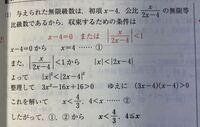 (1) 与えられた無限級数は, 初項 x-4, 公比 x/(2x-4) の無限等
比級数であるから, 収束するための条件は
x-4=0 または |x/(2x-4)|<1
x-4=0 から x=4 …… ①
また, |x/(2x-4)|<1 から |x|<|2x-4|
よって |x|²<|2x-4|²
整理して 3x²-16x+16>0 ゆえに (3x-4)(x-4)>0
これを解いて x<4/3, 4<x …… ②
したがって, ①, ② から x<4/3, 4≦x